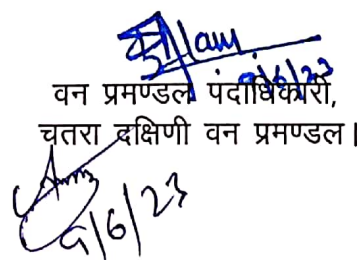 वन प्रमण्डल पदाधिकारी,
चतरा दक्षिणी वन प्रमण्डल।
9/6/23